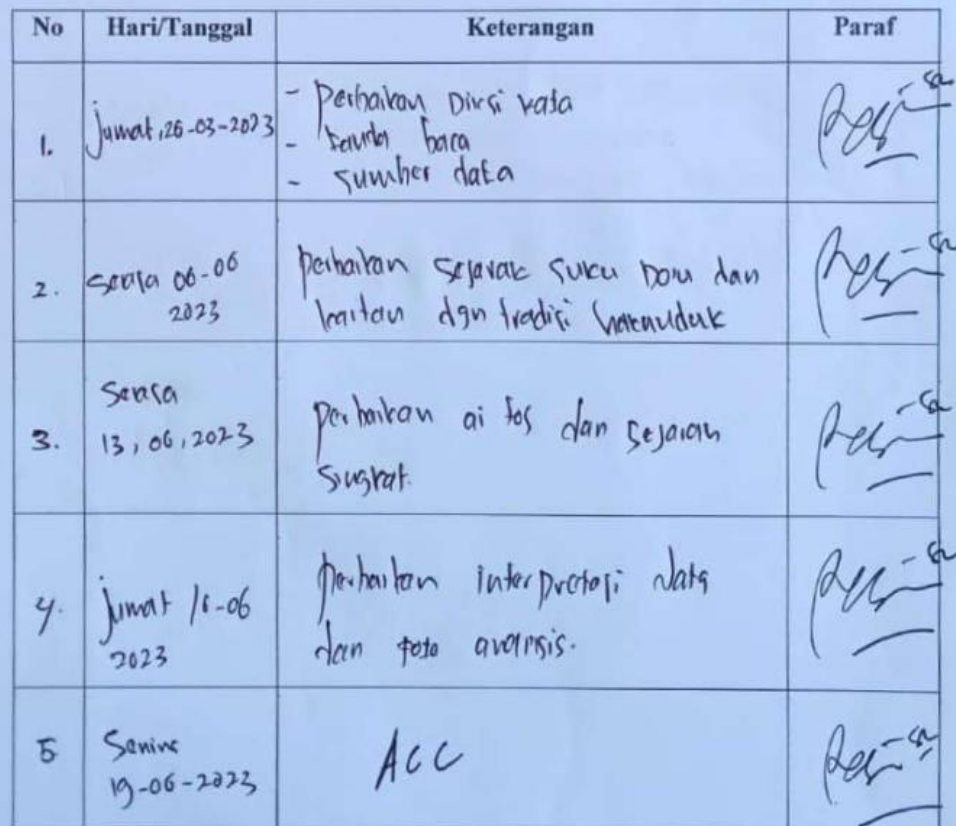 No Hari/Tanggal Keterangan Paraf
1. Jumat, 26-03-2023 - Perbaikan Diksi kata
- Tanda baca
- Sumber data
2. Selasa 06-06 perbaikan sejarah suku dan
2023 kaitan dgn tradisi
3. Selasa perbaikan ai tos dan sejarah
13, 06, 2023 singkat.
4. Jumat 16-06 perbaikan interpretasi data
2023 dan foto analisis.
5 Senin ACC
19-06-2023